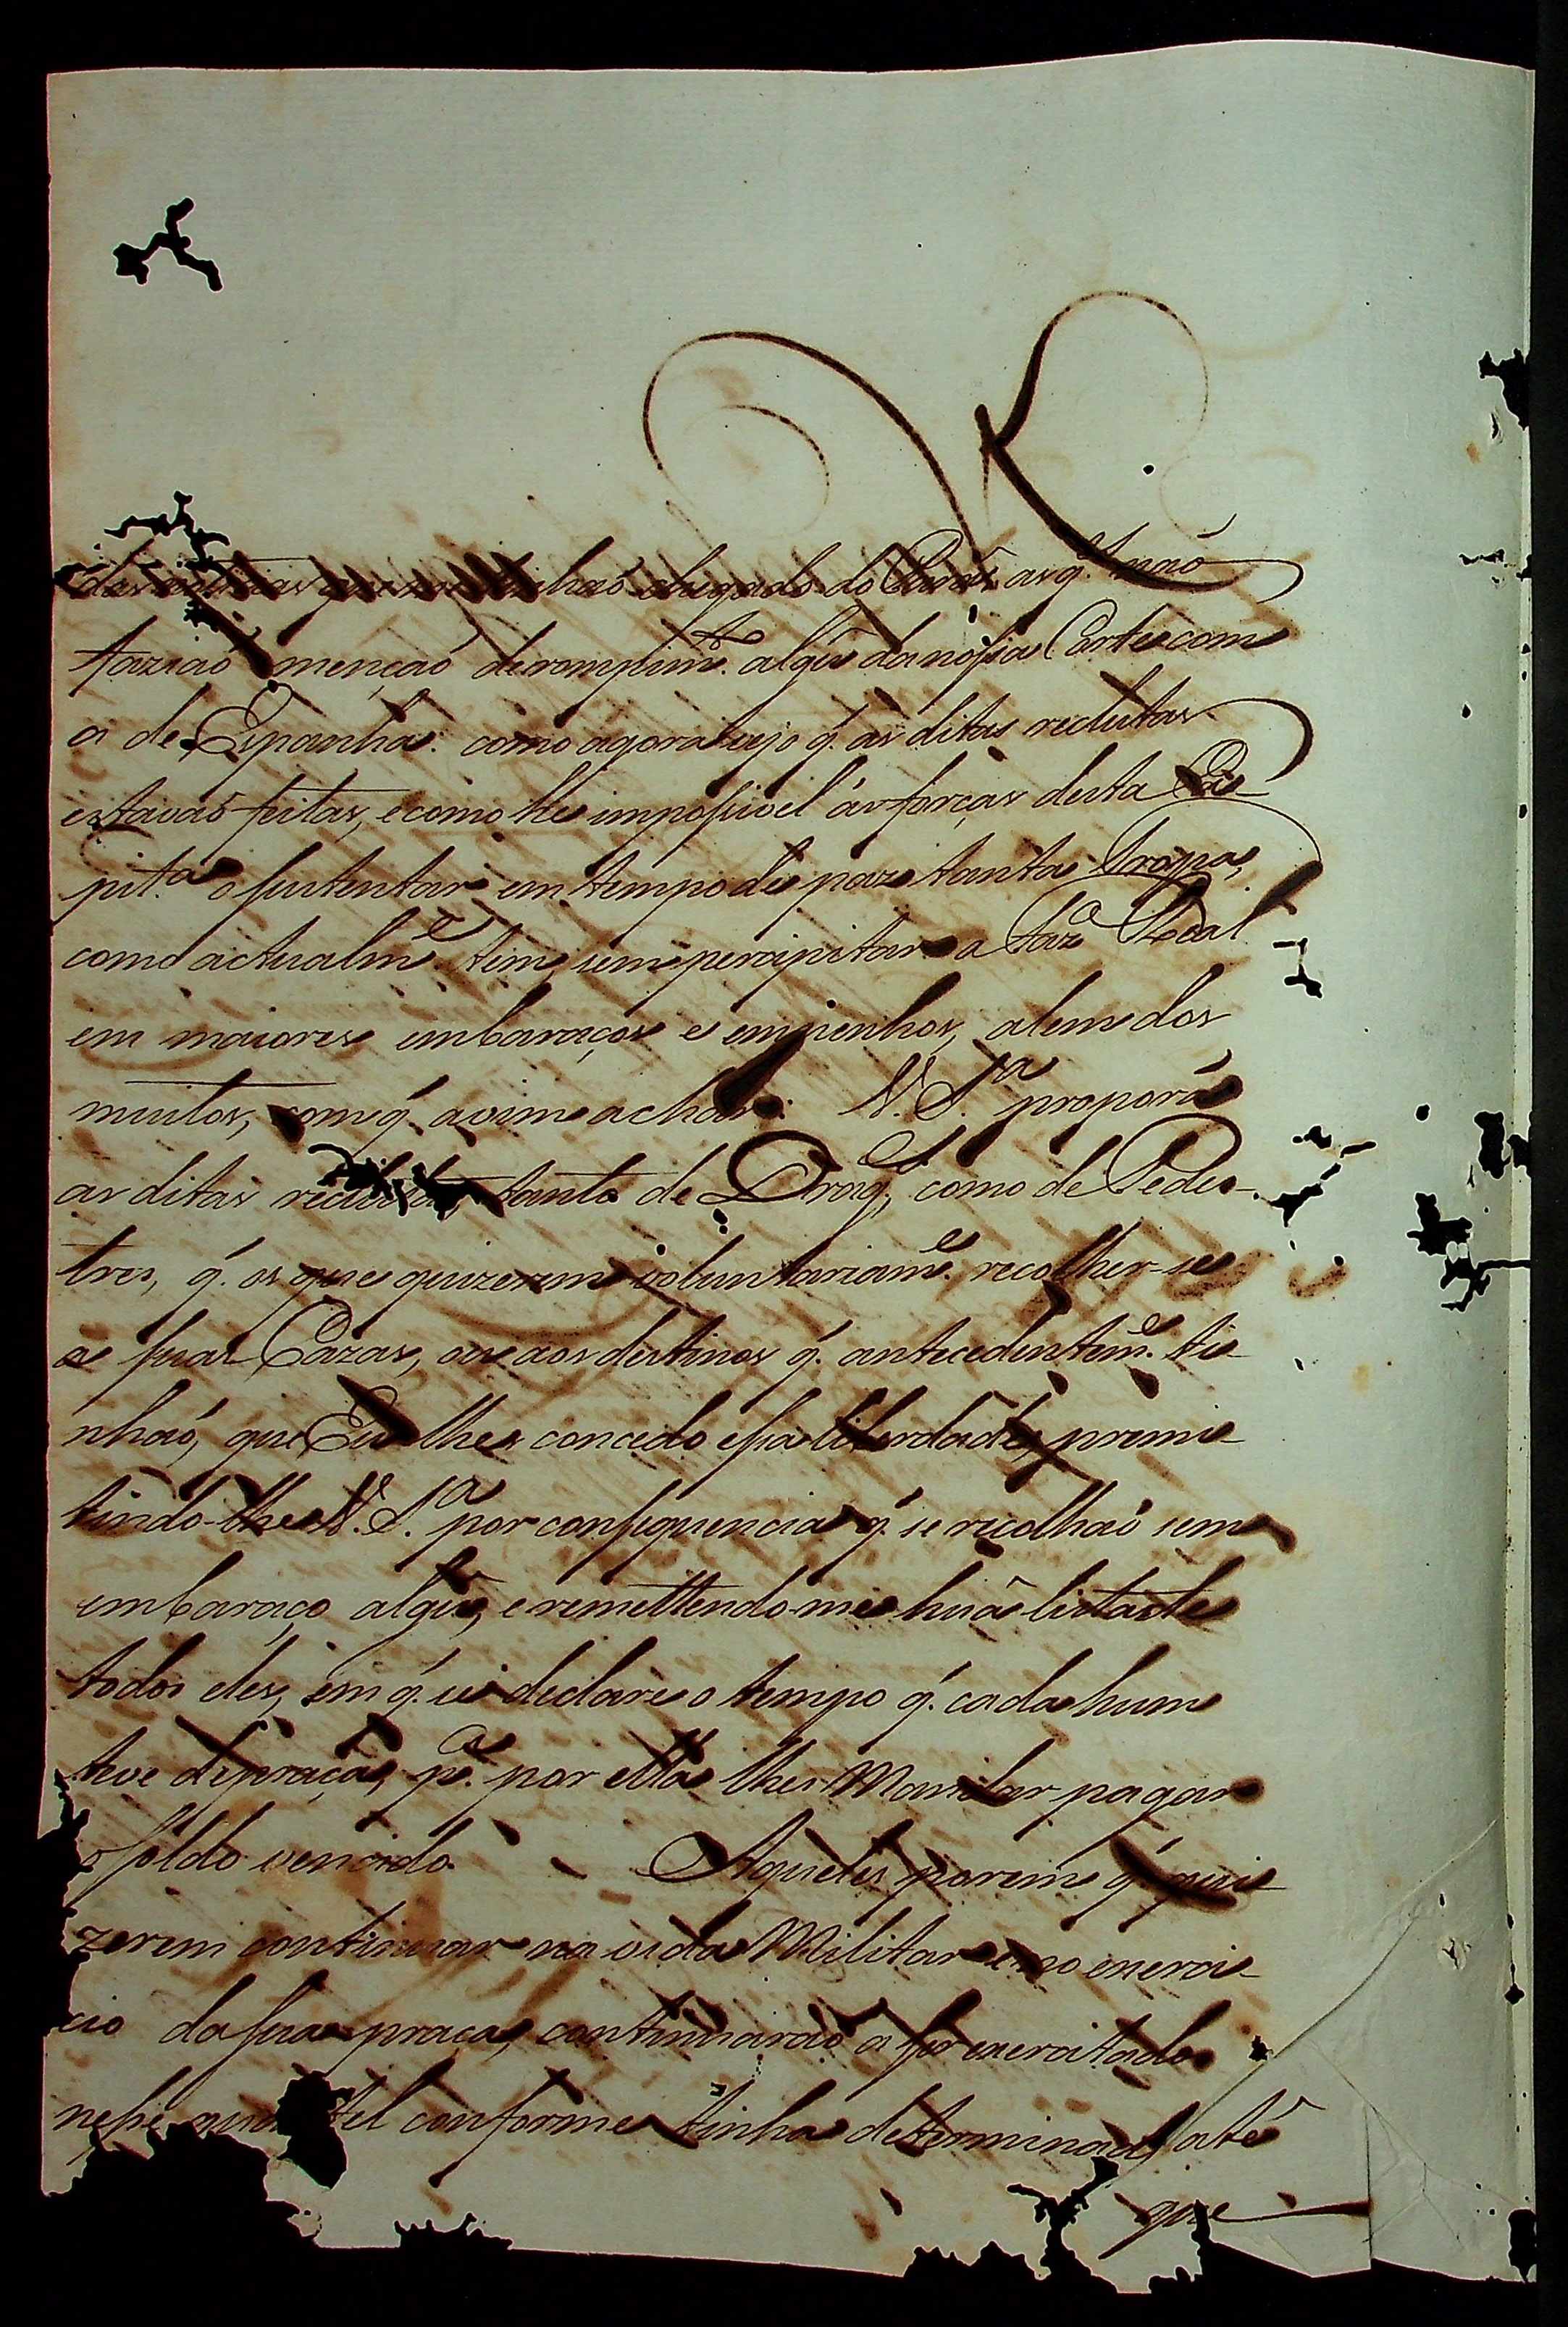 das noticias que me tinhaõ chegado do Pará, as q.' naõ
faziaõ mençaõ de rompim.to algũ da nossa Corte com
a de Espanha: como agora vejo q.' as ditas reclutas
estavaõ feitas, e como he impossivel ás forças desta Ca-
pit.a o sustentar em tempo de paz tanta Tropa,
como actualm.e tem, sem percipitar a Faz.a Real
em maiores embaraços e empenhos, alem dos
muitos, com q.' a vim achar: V. S.a proporá
as ditas reclutas, tanto de Drag.s, como de Pedes-
tres, q.' os que quizerem voluntariam.e recolher-se
a suas Cazas, ou aos destinos q.' antecedentem.e ti-
nhaõ, que Eu lhes concedo essa liberdade, premi-
tindo-lhes V. S.a por consequencia q.' se recolhaõ sem
embaraço algũ, e remettendo-me huã lista de
todos eles, em q.' se declare o tempo q.' cada hum
teve de praça, p.a por ella lhes Mandar pagar
o soldo vencido. Aqueles porem q.' qui-
zerem continuar na vida Militar e no exerci-
cio da sua praça, continuaraõ a ser exercitados
nesse quartel conforme tinha determinado, até
que